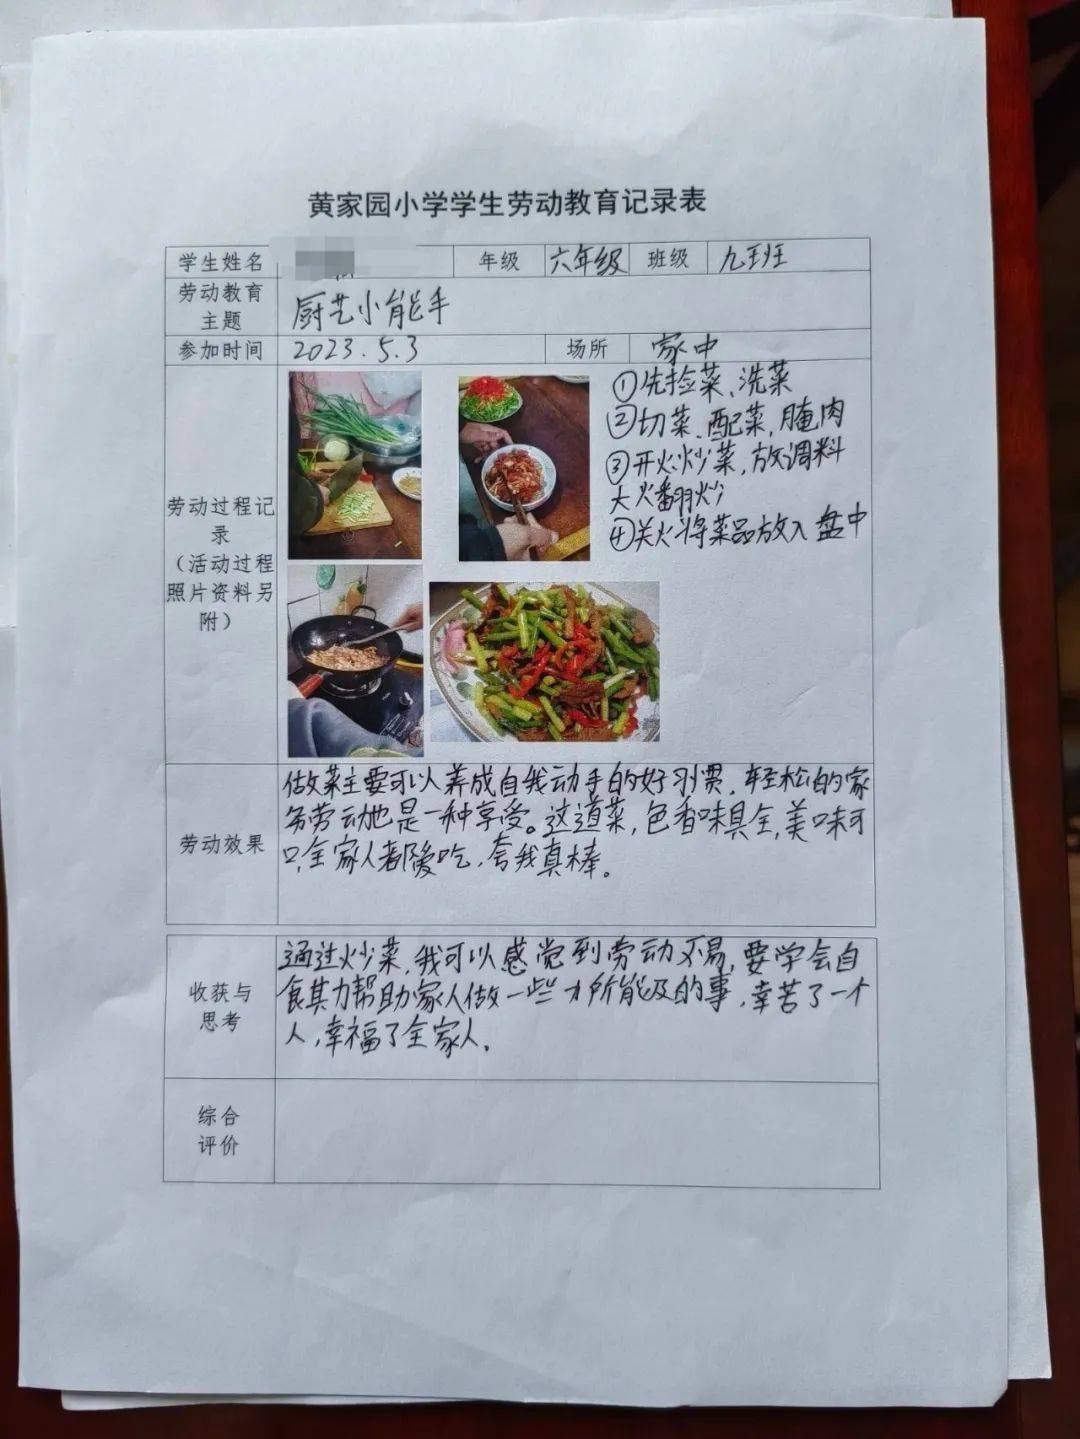 黄家园小学学生劳动教育记录表
学生姓名 年级 六年级 班级 九班
劳动教育
主题
厨艺小能手
参加时间 2023.5.3 场所 家中
劳动过程记
录
（活动过程
照片资料另
附）
①先捡菜、洗菜
②切菜、配菜、腌肉
③开火炒菜，放调料
大火翻炒
④关火将菜品放入盘中
劳动效果
做菜主要可以养成自我动手的好习惯，轻松的家
务劳动也是一种享受。这道菜，色香味具全，美味可
口，全家人都爱吃，夸我真棒。
收获与
思考
通过炒菜，我可以感觉到劳动不易，要学会自
食其力帮助家人做一些力所能及的事，幸苦了一个
人，幸福了全家人。
综合
评价